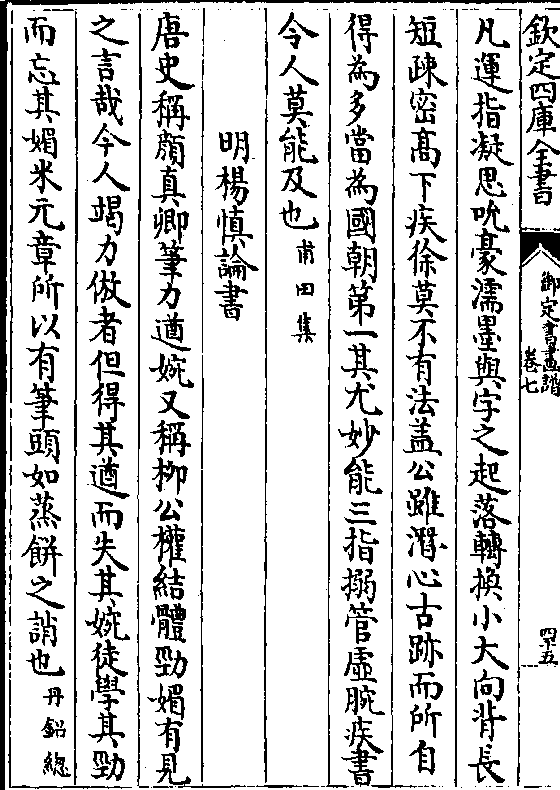 欽定四庫全書
御定書畫譜
卷七
四十五
凡運指凝思吮毫濡墨與字之起落轉換小大向背長
短疎密高下疾徐莫不有法蓋公雖潛心古跡而所自
得為多當為國朝第一其尤妙能三指搦管虛腕疾書
令人莫能及也甫田集
明楊慎論書
唐史稱顏真卿筆力遒婉又稱柳公權結體勁媚有見
之言哉今人竭力倣者但得其遒而失其婉徒學其勁
而忘其媚米元章所以有筆頭如蒸餅之誚也丹鉛總